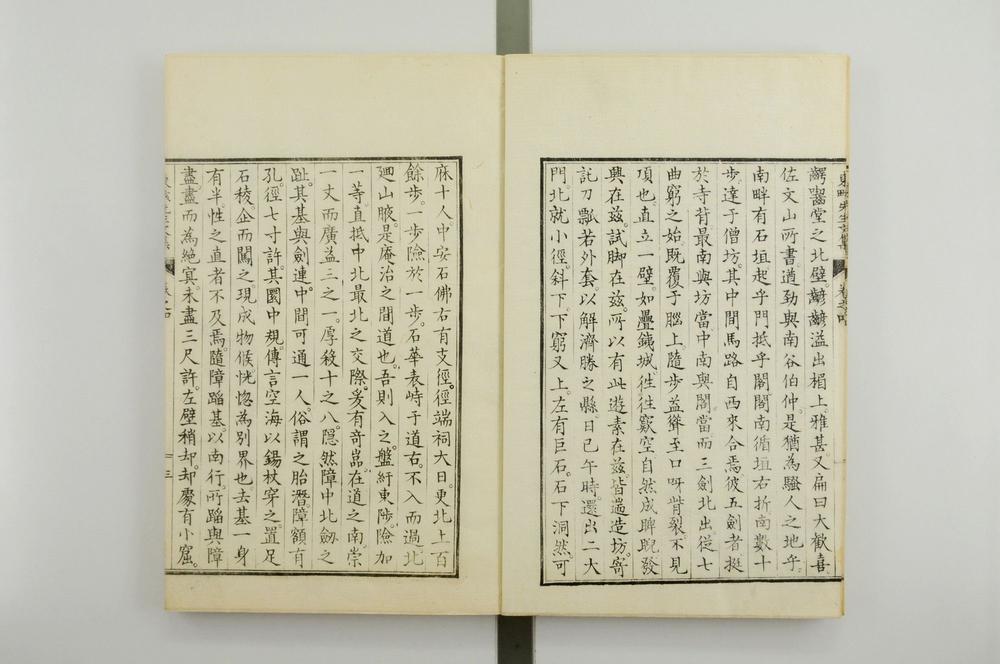 齶齾堂之北壁。齴齴溢出楣上。雅甚。又扁曰大歡喜。
佐文山所書遒勁與南谷伯仲。是猶為騷人之地乎。
南畔有石垣。起乎門抵乎閣。閣南循垣右折南數十
步。達于僧坊。其中間馬路自西來合焉。彼五劍者挺
於寺背。最南與坊當。中南與閣當。而三劍北出從七
曲。窮之始既覆于腦上。隨步益聳。至口呀背裂不見
項也。直立一壁。如疊鐵城。往往竅空自然成睥睨。發
興在茲。試脚在茲。所以有此遊素在茲。皆遄造坊。寄
託刀瓢若外套。以解濟勝之縣。日已午時。還出二大
門。北就小徑。斜下。下窮又上。左有巨石。石下洞然。可
庥十人。中安石佛。右有支徑。徑端祠大日。更北上百
餘步。一步險於一步。石華表峙于道右。不入而過。北
廻山腋。是庵治之間道也。吾則入之。盤紆東陟。險加
一等。直抵中北最北之交際。爰有奇嵓。在道之南。崇
一丈而廣益三之一。厚殺十之八。隱然障中北劍之
趾。其基與劍連。中間可通一人。俗謂之胎潛。障額有
孔。徑七寸許。其圜中規。傳言空海以錫杖穿之。置足
石稜。企而闖之。現成物候。恍惚為別界也。去基一身
有半。性之直者不及焉。隨障蹈基。以南行。所蹈與障
盡。盡而為絕冥。未盡三尺許。左壁稍却。却處有小窟。